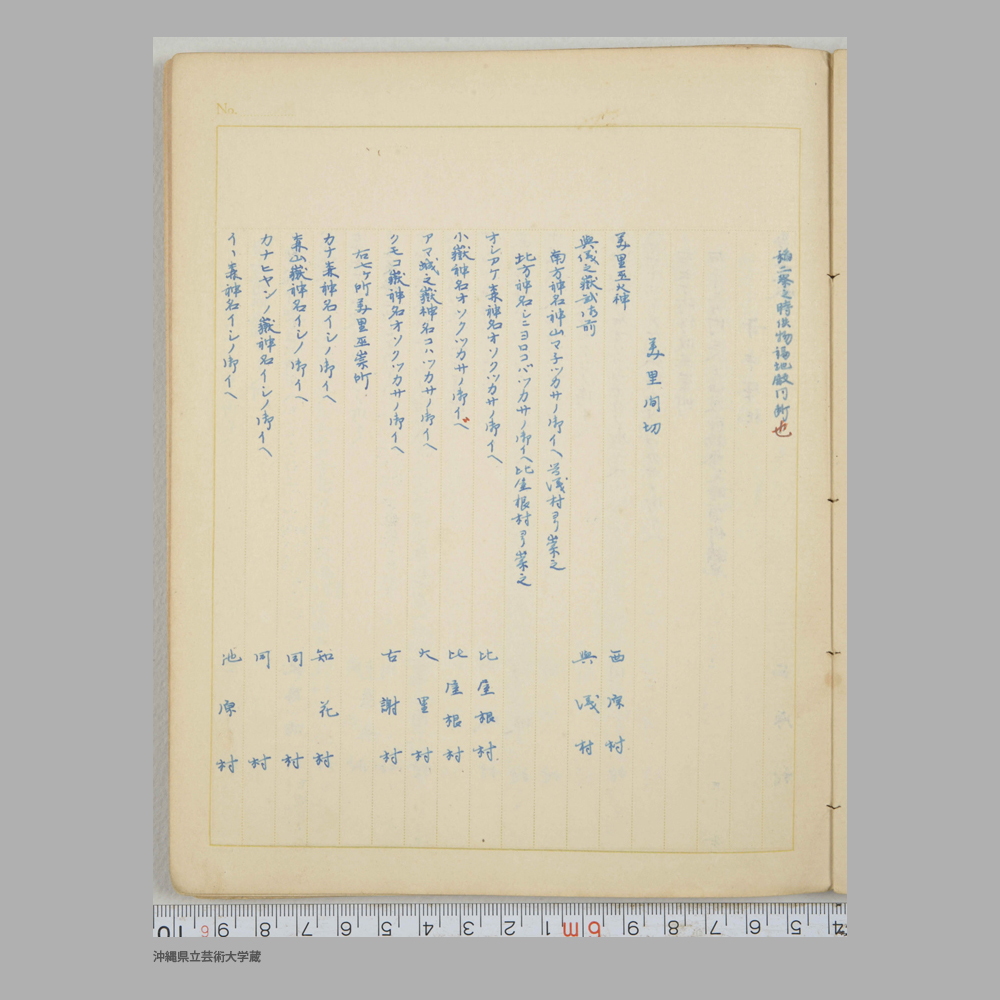 No.
詣二祭之時供物福地殿内断也
美里間切
美里巫火神 西原村
與儀之嶽弐御前 與儀村
南方神名神山マ子ツカサノ御イヘ 與儀村ヨリ崇之
北方神名シニヨロコバツカサノ御イヘ 比屋根村ヨリ崇之
オシアケ森神名オソクツカサノ御イヘ 比屋根村
小嶽神名オソクツカサノ御イヘ 比屋根村
アマ城之嶽神名コハツカサノ御イヘ 大里村
クモコ嶽神名オソクツカサノ御イヘ 古謝村
右七ヶ所美里巫崇所
カナ森神名イシノ御イヘ 知花村
森山嶽神名イシノ御イヘ 同村
カナヒヤンノ嶽神名イシノ御イヘ 同村
イ、森神名イシノ御イヘ 池原村
沖縄県立芸術大学蔵